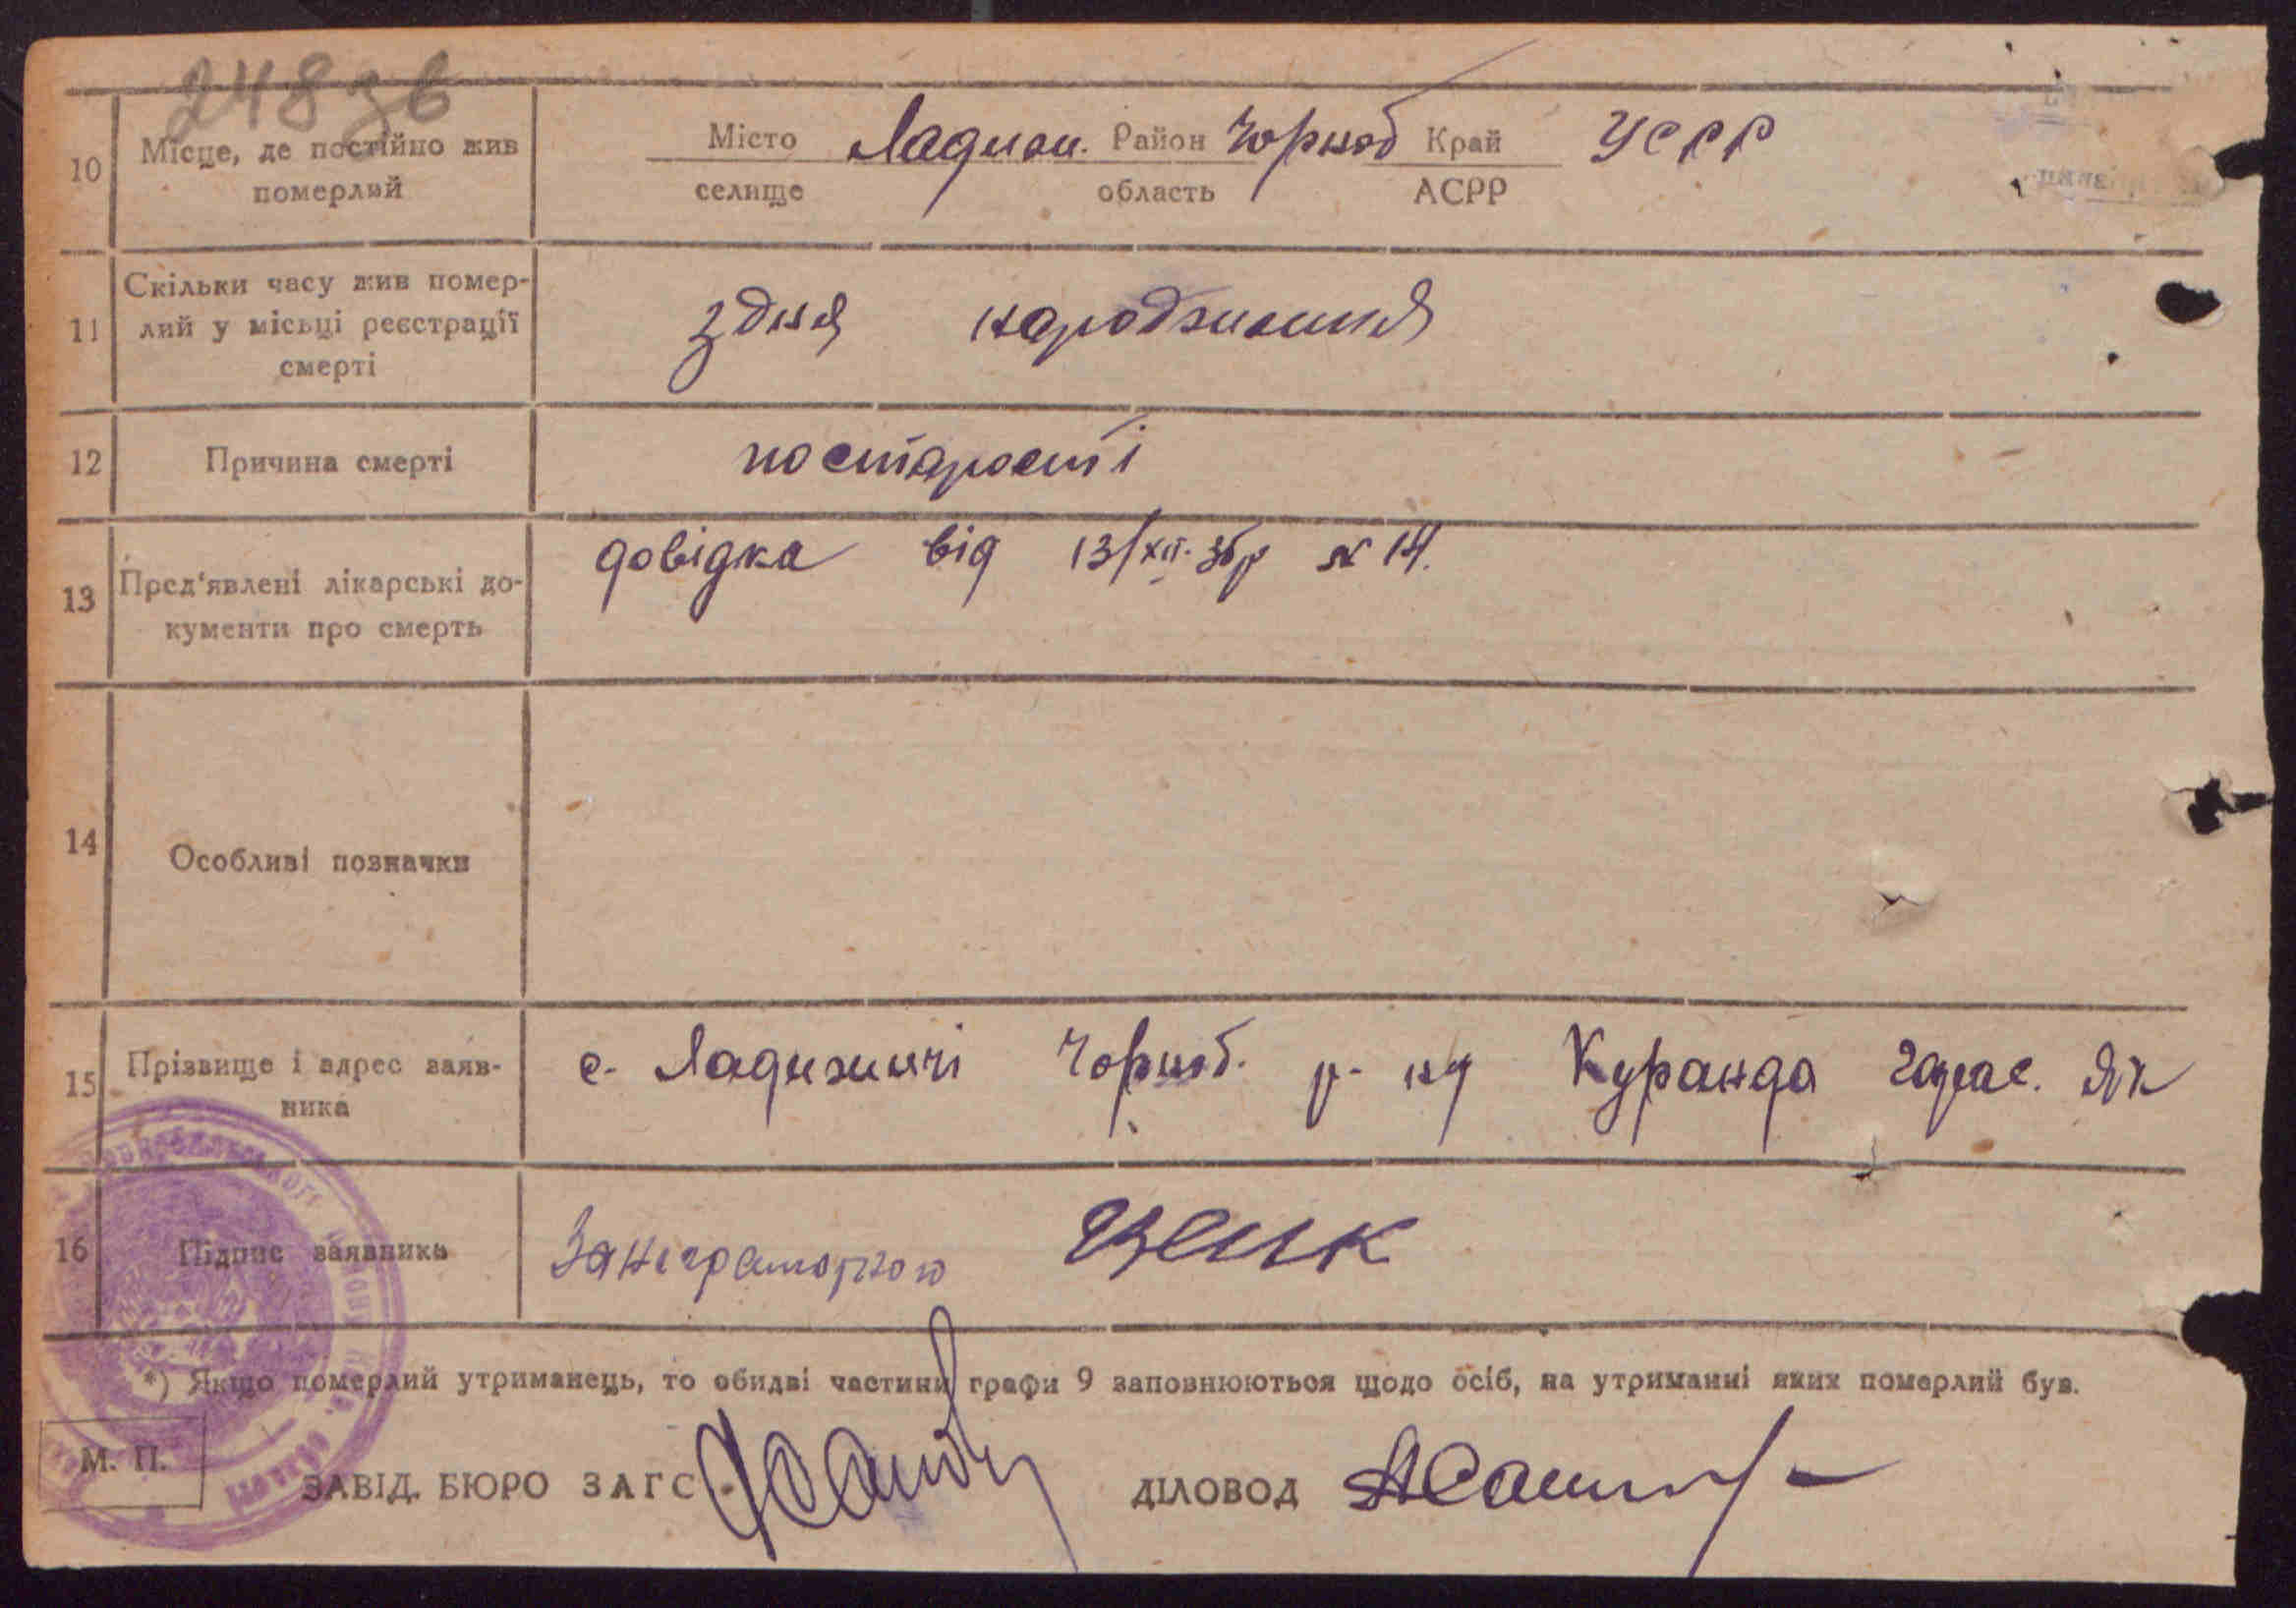 248 зв
10 Місце, де постійно жив померлий
Місто Ладиж. Район Чорноб Край УСРР
селище область АСРР
11 Скільки часу жив помер-
лий у місці реєстрації
смерті
з дня народження
12 Причина смерті по старості
13 Пред'явлені лікарські до-
кументи про смерть
довідка від 13/XII-36р № 14.
14 Особливі позначки
15 Прізвище і адрес заяв-
ника
с. Ладижичі Чорноб. р-ну Куранда Гарас. Як
16 Підпис заявника За неграмотною
*) Якщо померлий утриманець, то обидві частини графи 9 заповнюються щодо осіб, на утриманні яких померлий був.
М. П.
ЗАВІД. БЮРО ЗАГС ДІЛОВОД